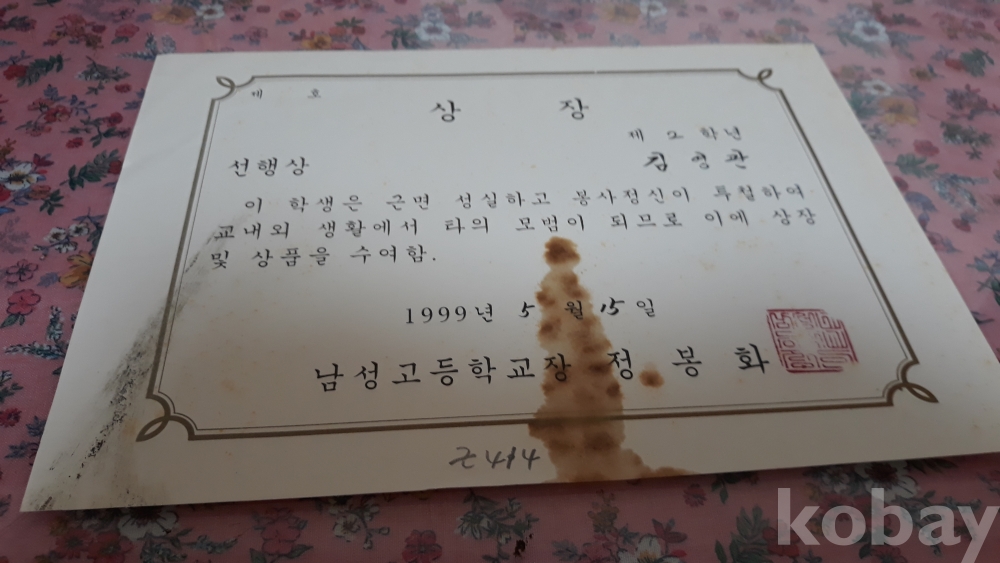 제 호
상 장
제 2 학년
선행상 김영관
이 학생은 근면 성실하고 봉사정신이 투철하여
교내외 생활에서 타의 모범이 되므로 이에 상장
및 상품을 수여함.
1999년 5월 15일
남성고등학교장 정봉화
kobay